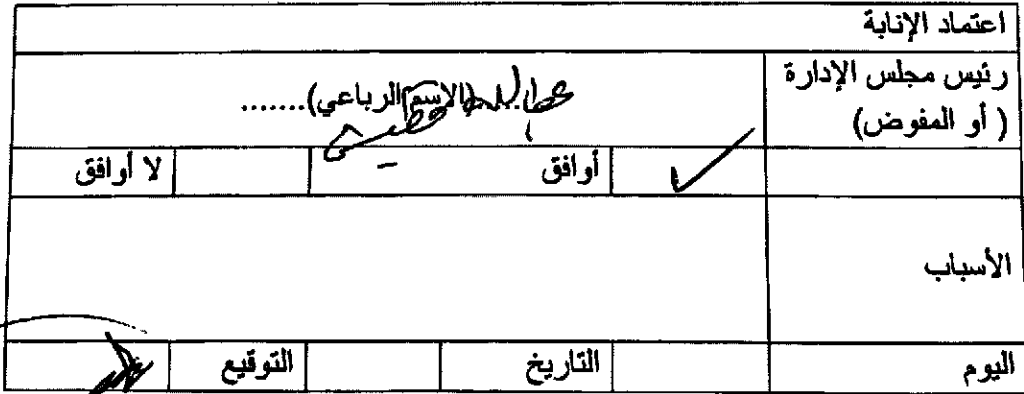 اعتماد الإنابة
رئيس مجلس الإدارة
( أو المفوض)
(الاسم الرباعي).......
أوافق
لا أوافق
الأسباب
اليوم
التاريخ
التوقيع